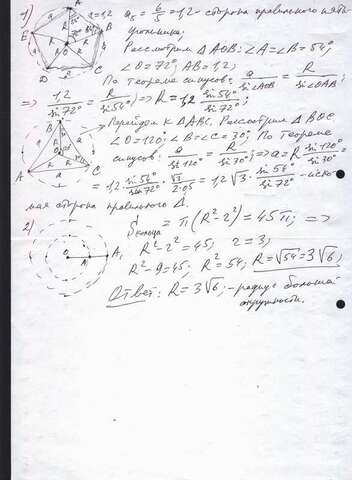 1) a=1,2 a₅ = 6/5 = 1,2 - сторона правильного пяти-
угольника;
Рассмотрим ΔAOB: ∠A=∠B=54°,
∠O=72°, AB=1,2;
По теореме синусов: a/sin∠AOB = R/sin∠OAB;
=> 1,2/sin72° = R/sin54°; => R=1,2 sin54°/sin72°;
Перейдём к ΔABC. Рассмотрим ΔBOC
∠O=120°, ∠B=∠C=30°; По теореме
синусов: a/sin120° = R/sin30°; => a=R sin120°/sin30° =
= 1,2 · sin54°/sin72° · √3/2·0,5 = 1,2√3 · sin54°/sin72° - иско-
мая сторона правильного Δ.
2) Sкольца = π(R²-r²) = 45π; =>
R²-r²=45, r=3,
R²-9=45; R²=54; R=√54=3√6;
Ответ: R=3√6; - радиус большей
окружности.